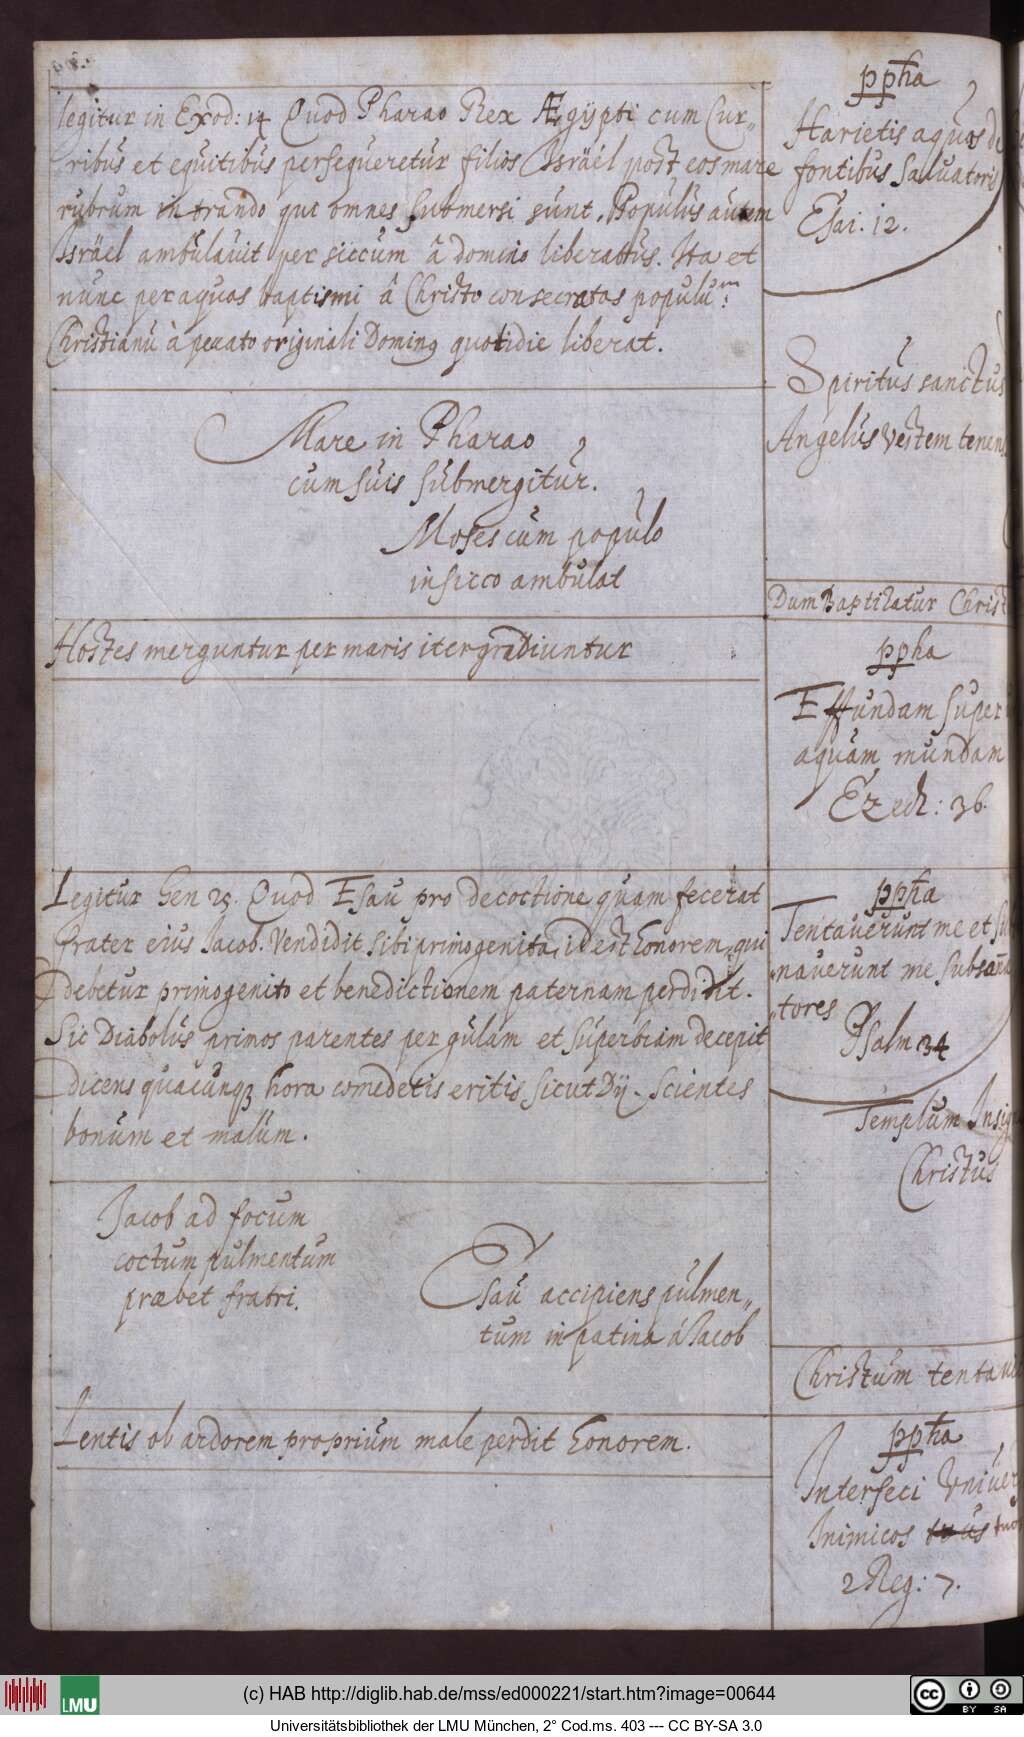 legitur in Exod: 14 Quod Pharao Rex Ægÿpti cum Cur„
ribus et equitibus persequeretur filios Israël post eos mare
rubrum intrando qui omnes submersi sunt. Populus autem
Israël ambulavit per siccum â domino liberatus. Ita et
nunc per aquas baptismi â Christo consecratas populum
Christianū à peccato originali Dominus quotidie liberat.
Mare in Pharao
cum suis submergitur.
Moses cum populo
in sicco ambulat
Hostes merguntur per maris iter gradiuntur
Legitur Gen 25. Quod Esau pro decoctione quam fecerat
frater eius Jacob. Vendidit sibi primogenita, id est honorem, qui
debetur primogenito et benedictionem paternam perdidit.
Sic Diabolus primos parentes per gulam et superbiam decepit
Dicens quacunqz hora comedetis eritis sicut Dij. Scientes
bonum et malum.
Jacob ad focum
coctum pulmentum
præbet fratri.
Esau accipiens pulmen„
tum in patina á Jacob
Lentis ob ardorem proprium male perdit honorem.
ppha
Harietis aquas de
fontibus Salvatoris
Esai. 12.
Spiritus sanctus
Angelus vestem tenens
Dum Baptizatur Christ
ppha
Effundam super
aquam mundam
Ezech: 36.
ppha
Tentaverunt me et sub
„naverunt me subsanna
„tores
Psalm 34
Templum Insig
Christus
Christum tentavi
ppha
Interfeci Univer
Inimicos tuos
2 Reg: 7.
(c) HAB http://diglib.hab.de/mss/ed000221/start.htm?image=00644
LMU
cc BY SA
Universitätsbibliothek der LMU München, 2° Cod.ms. 403 --- CC BY-SA 3.0